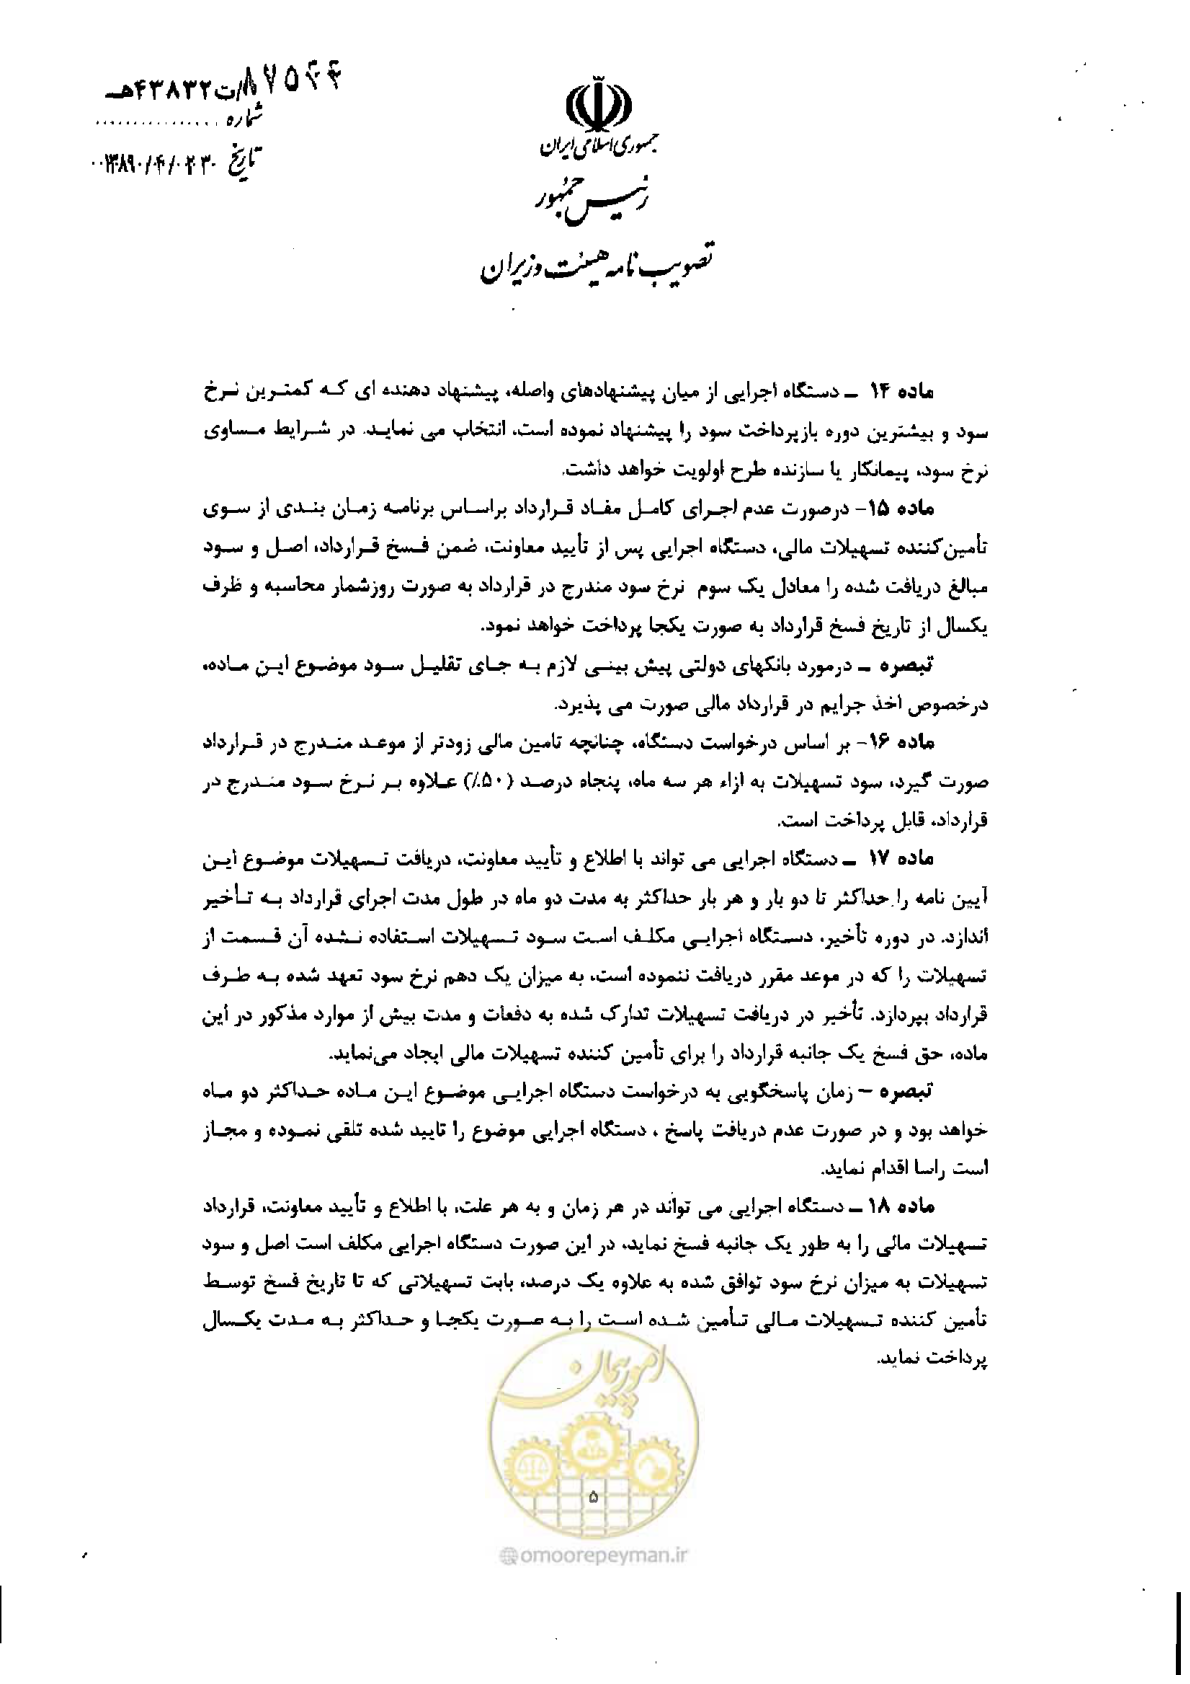 ۸۷۵۴۴/ت۴۳۸۳۲هـ
شماره
تاریخ ۱۳۸۹/۴/۲۳
جمهوری اسلامی ایران
رئیس جمهور
تصویب نامه هیئت وزیران
ماده ۱۴ – دستگاه اجرایی از میان پیشنهادهای واصله، پیشنهاد دهنده ای که کمترین نرخ
سود و بیشترین دوره بازپرداخت سود را پیشنهاد نموده است، انتخاب می نماید. در شرایط مساوی
نرخ سود، پیمانکار یا سازنده طرح اولویت خواهد داشت.
ماده ۱۵- درصورت عدم اجرای کامل مفاد قرارداد براساس برنامه زمان بندی از سوی
تأمین‌کننده تسهیلات مالی، دستگاه اجرایی پس از تأیید معاونت، ضمن فسخ قرارداد، اصل و سود
مبالغ دریافت شده را معادل یک سوم نرخ سود مندرج در قرارداد به صورت روزشمار محاسبه و ظرف
یکسال از تاریخ فسخ قرارداد به صورت یکجا پرداخت خواهد نمود.
تبصره – درمورد بانکهای دولتی پیش بینی لازم به جای تقلیل سود موضوع این ماده،
درخصوص اخذ جرایم در قرارداد مالی صورت می پذیرد.
ماده ۱۶- بر اساس درخواست دستگاه، چنانچه تامین مالی زودتر از موعد مندرج در قرارداد
صورت گیرد، سود تسهیلات به ازاء هر سه ماه، پنجاه درصد (۵۰٪) علاوه بر نرخ سود مندرج در
قرارداد، قابل پرداخت است.
ماده ۱۷ – دستگاه اجرایی می تواند با اطلاع و تأیید معاونت، دریافت تسهیلات موضوع این
آیین نامه را حداکثر تا دو بار و هر بار حداکثر به مدت دو ماه در طول مدت اجرای قرارداد به تأخیر
اندازد. در دوره تأخیر، دستگاه اجرایی مکلف است سود تسهیلات استفاده نشده آن قسمت از
تسهیلات را که در موعد مقرر دریافت ننموده است، به میزان یک دهم نرخ سود تعهد شده به طرف
قرارداد بپردازد. تأخیر در دریافت تسهیلات تدارک شده به دفعات و مدت بیش از موارد مذکور در این
ماده، حق فسخ یک جانبه قرارداد را برای تأمین کننده تسهیلات مالی ایجاد می‌نماید.
تبصره – زمان پاسخگویی به درخواست دستگاه اجرایی موضوع این ماده حداکثر دو ماه
خواهد بود و در صورت عدم دریافت پاسخ ، دستگاه اجرایی موضوع را تایید شده تلقی نموده و مجاز
است راسا اقدام نماید.
ماده ۱۸ – دستگاه اجرایی می تواند در هر زمان و به هر علت، با اطلاع و تأیید معاونت، قرارداد
تسهیلات مالی را به طور یک جانبه فسخ نماید، در این صورت دستگاه اجرایی مکلف است اصل و سود
تسهیلات به میزان نرخ سود توافق شده به علاوه یک درصد، بابت تسهیلاتی که تا تاریخ فسخ توسط
تأمین کننده تسهیلات مالی تأمین شده است را به صورت یکجا و حداکثر به مدت یکسال
پرداخت نماید.
امور پیمان
۵
@omoorepeyman.ir